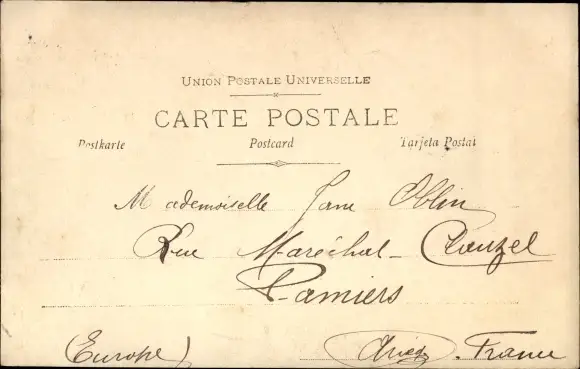 UNION POSTALE UNIVERSELLE
CARTE POSTALE
Postkarte Postcard Tarjeta Postal
Mademoiselle Jane Oblin
Rue Maréchal Clauzel
Pamiers
(Europe) Ariège. France